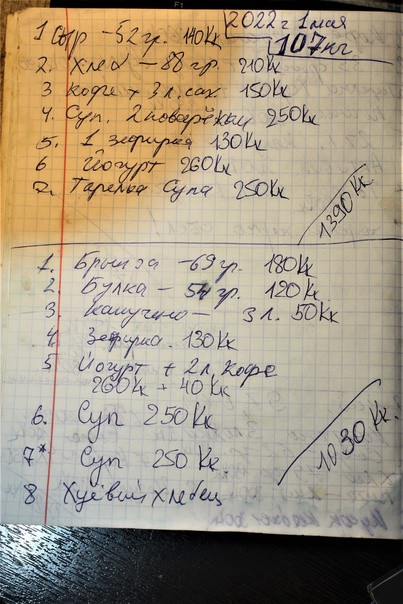 2022г 1 мая
107кг
1 Сыр - 52 гр. 140Кк
2. Хлеб - 88 гр. 210Кк
3 Кофе + 3 л. сах. 150Кк
4. Суп. 2 поварёжки 250Кк
5. 1 зефирка 130Кк
6 Йогурт 260Кк
7. Тарелка Супа 250Кк
1390Кк.
1. Брынза - 69 гр. 180Кк
2. Булка - 54 гр. 120Кк
3. Капучино - 3 л. 50Кк
4. Зефирка. 130Кк
5 Йогурт + 2 л. кофе
260Кк + 40Кк
6. Суп 250Кк
7* Суп 250Кк.
1030Кк.
8 Хуёвий хлебец